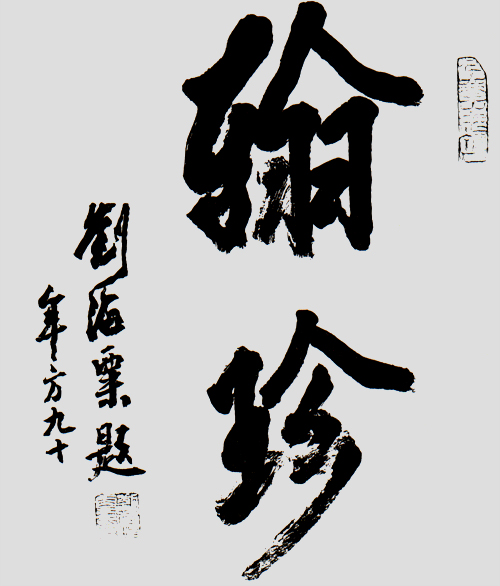 翰珍
劉海粟題
年方九十